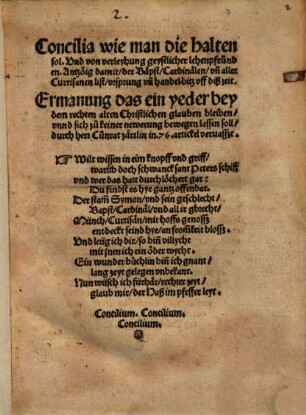 2.
Concilia wie man die halten
sol. Vnd von verleyhung geystlicher lehenpfründ
en. Antzöig damit/ der Bäpst/ Cardinälen/ vñ aller
Curtisanen list/ vrsprung vñ handel bitz vff diß zyt.
Ermanung das ein yeder bey
dem rechten alten Christlichen glauben bleiben/
vnnd sich zů keiner newerung bewegen lassen soll/
durch herr Cůnrat zärtlin in.76.artickel veruasszt.
☞ Wilt wissen in eim knopff vnd griff/
warūb doch schwanck sant Peters schiff
vnd wer das hatt durchlöchert gar:
Du findst es hye gantz offenbar.
Der stam̃ Symon/ vnd sein geschlecht/
Bapst/ Cardinäl/ vnd all ir gbrecht/
Münch/ Curtisän/ mit hoffs genossz
entdeckt seind hye/ an from̃keit blossz.
Vnd leüg ich dir/ so hiñ villycht
mit jnen ich ein öder wycht.
Ein wunder büchlin biñ ich gnant/
lang zeyt gelegen vnbekant.
Nun wüsch ich fürhär/ rechter zeyt/
glaub mir/ der Haß im pfeffer leyt.
Concilium. Concilium.
Concilium.